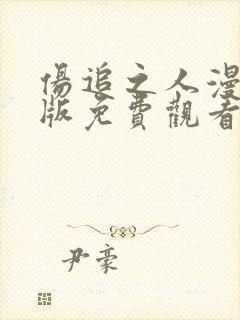 傷追之人漫
版免費觀看
尹豪